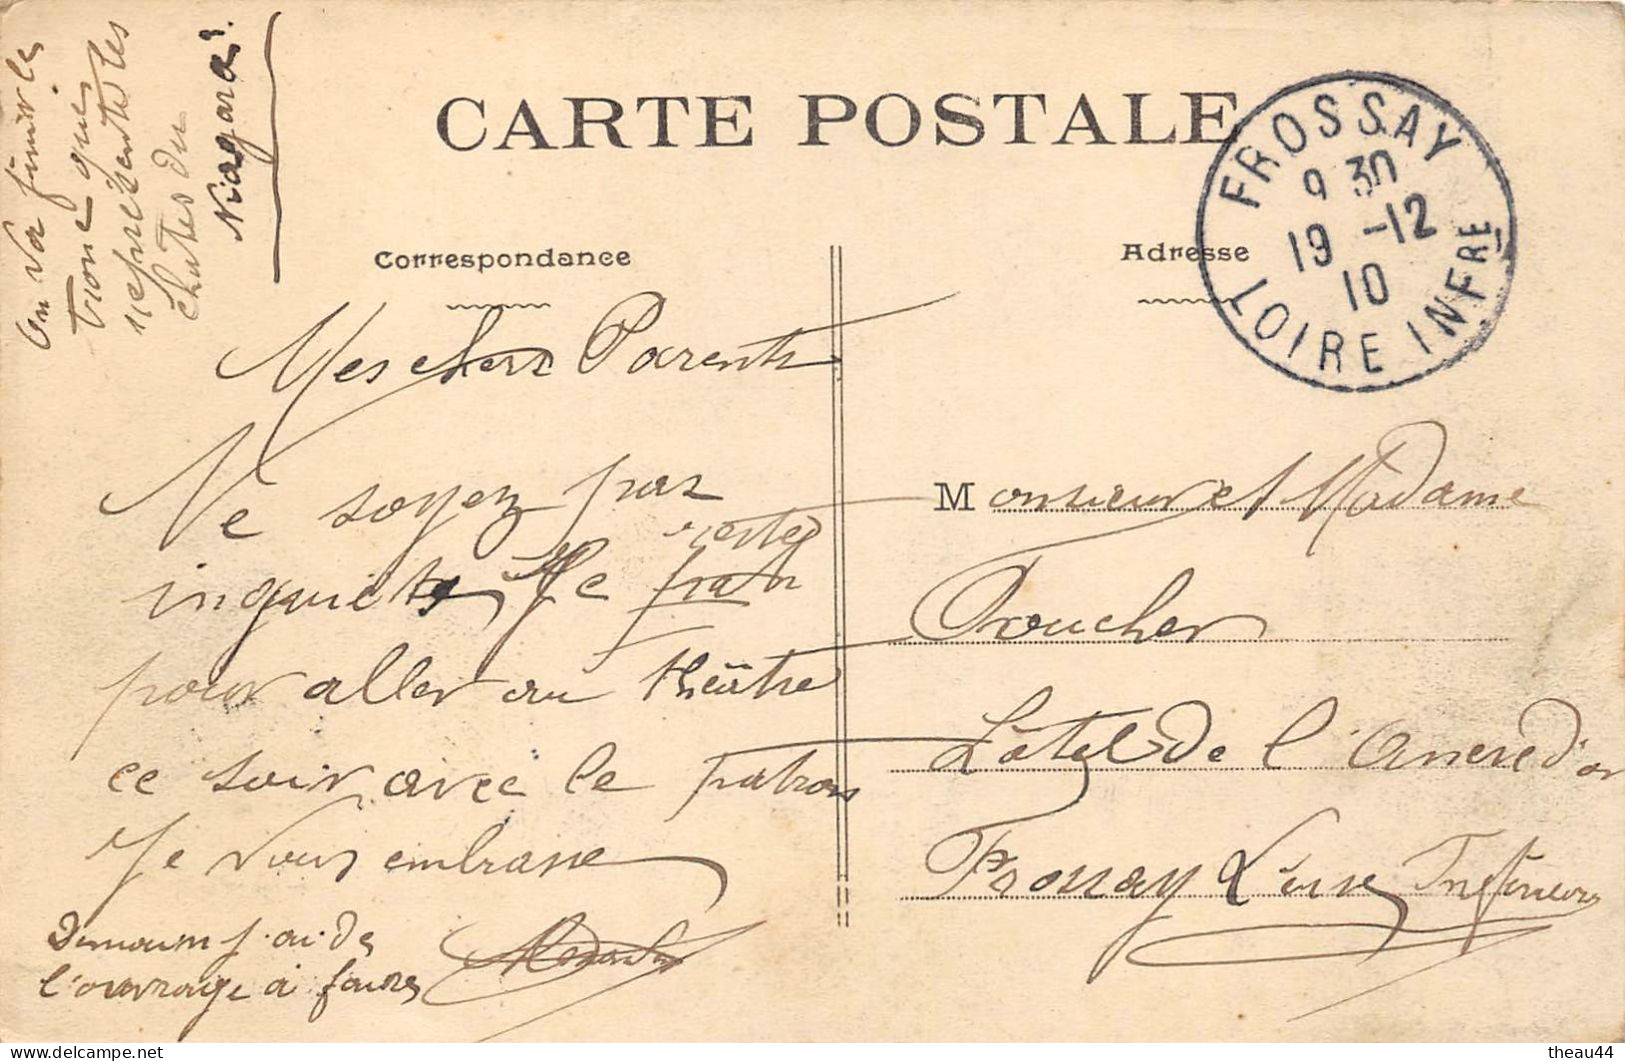 on va finir la
que
représente les
chutes du
Niagara.
CARTE POSTALE
Correspondance
Adresse
FROSSAY
9 30
19 -12
10
LOIRE INFRE
Mes chers Parents
Ne soyez pas
inquiets Je restes
pour aller au théâtre
ce soir avec le patron
Je vous embrasse
j'ai de
l'ouvrage a faire
Monsieur et Madame
Foucher
L'otel de l'Ancre d'or
Frossay Loire Inférieure
theau44